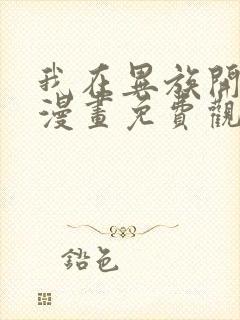 我在異族開
漫畫免費觀
鉛色